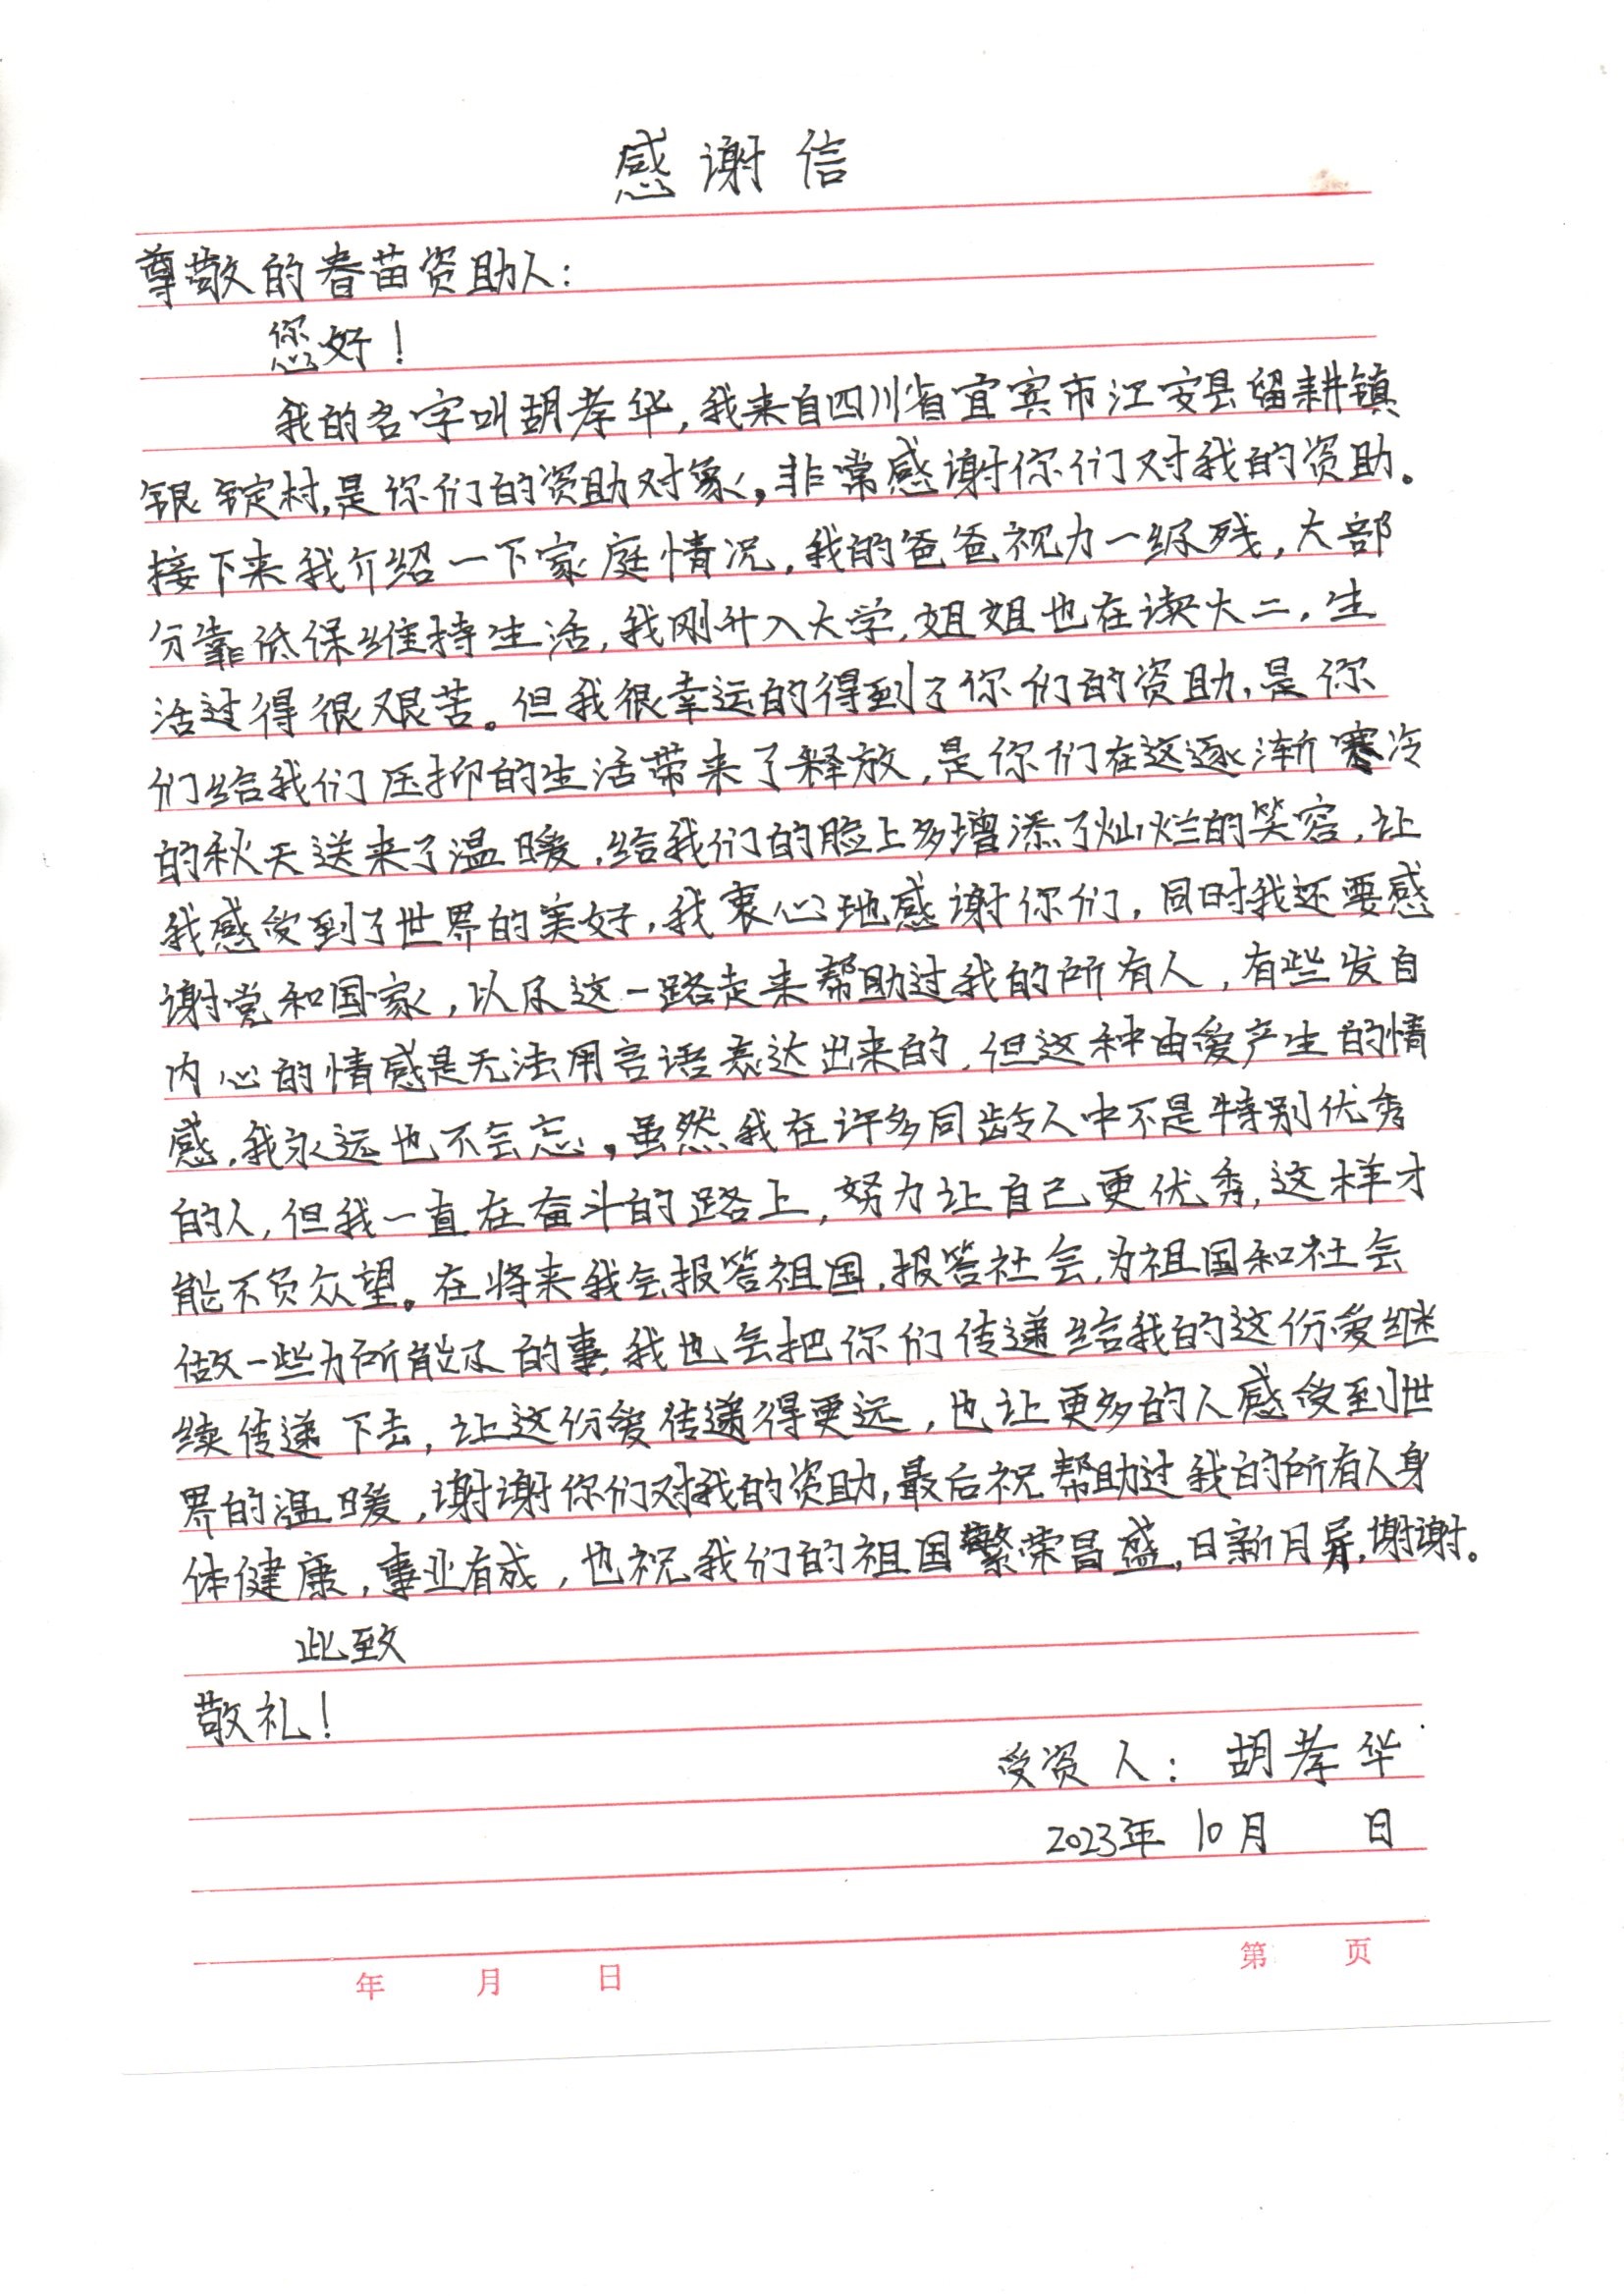 感谢信
尊敬的春苗资助人：
您好！
我的名字叫胡孝华，我来自四川省宜宾市江安县留耕镇
银锭村，是你们的资助对象，非常感谢你们对我的资助。
接下来我介绍一下家庭情况，我的爸爸视力一级残，大部
分靠低保维持生活，我刚升入大学，姐姐也在读大二，生
活过得很艰苦。但我很幸运的得到了你们的资助，是你
们给我们压抑的生活带来了释放，是你们在这逐渐寒冷
的秋天送来了温暖，给我们的脸上多增添了灿烂的笑容，让
我感受到了世界的美好，我衷心地感谢你们，同时我还要感
谢党和国家，以及这一路走来帮助过我的所有人，有些发自
内心的情感是无法用言语表达出来的，但这种由爱产生的情
感，我永远也不会忘。虽然我在许多同龄人中不是特别优秀
的人，但我一直在奋斗的路上，努力让自己更优秀，这样才
能不负众望。在将来我会报答祖国，报答社会，为祖国和社会
做一些力所能及的事，我也会把你们传递给我的这份爱继
续传递下去，让这份爱传递得更远，也让更多的人感受到世
界的温暖，谢谢你们对我的资助，最后祝帮助过我的所有人身
体健康，事业有成，也祝我们的祖国繁荣昌盛，日新月异，谢谢。
此致
敬礼！
受资人：胡孝华
2023年10月 日
年 月 日 第 页